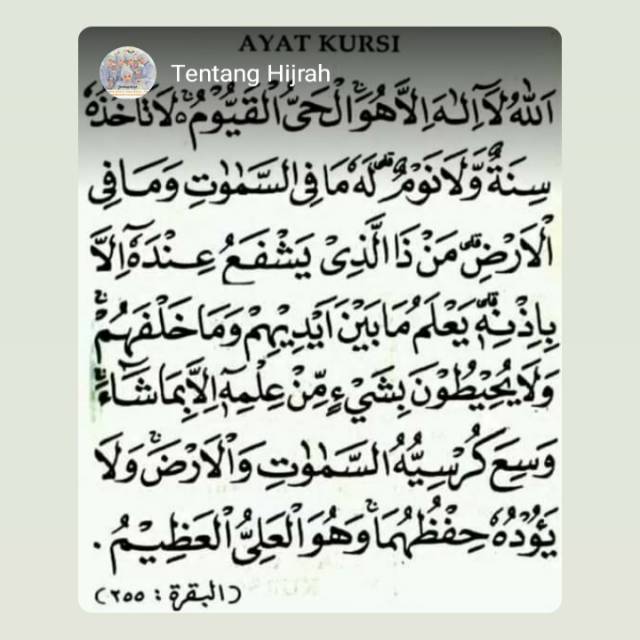 AYAT KURSI
Tentang Hijrah
اَللّٰهُ لَآ اِلٰهَ اِلَّا هُوَ الْحَيُّ الْقَيُّوْمُ ۚ لَا تَأْخُذُهٗ
سِنَةٌ وَّلَا نَوْمٌ ۗ لَهٗ مَا فِى السَّمٰوٰتِ وَمَا فِى
الْاَرْضِ ۗ مَنْ ذَا الَّذِيْ يَشْفَعُ عِنْدَهٗٓ اِلَّا
بِاِذْنِهٖ ۗ يَعْلَمُ مَا بَيْنَ اَيْدِيْهِمْ وَمَا خَلْفَهُمْ ۚ
وَلَا يُحِيْطُوْنَ بِشَيْءٍ مِّنْ عِلْمِهٖٓ اِلَّا بِمَا شَآءَ ۚ
وَسِعَ كُرْسِيُّهُ السَّمٰوٰتِ وَالْاَرْضَ ۚ وَلَا
يَـُٔوْدُهٗ حِفْظُهُمَا ۚ وَهُوَ الْعَلِيُّ الْعَظِيْمُ .
(البقرة : ٢٥٥)